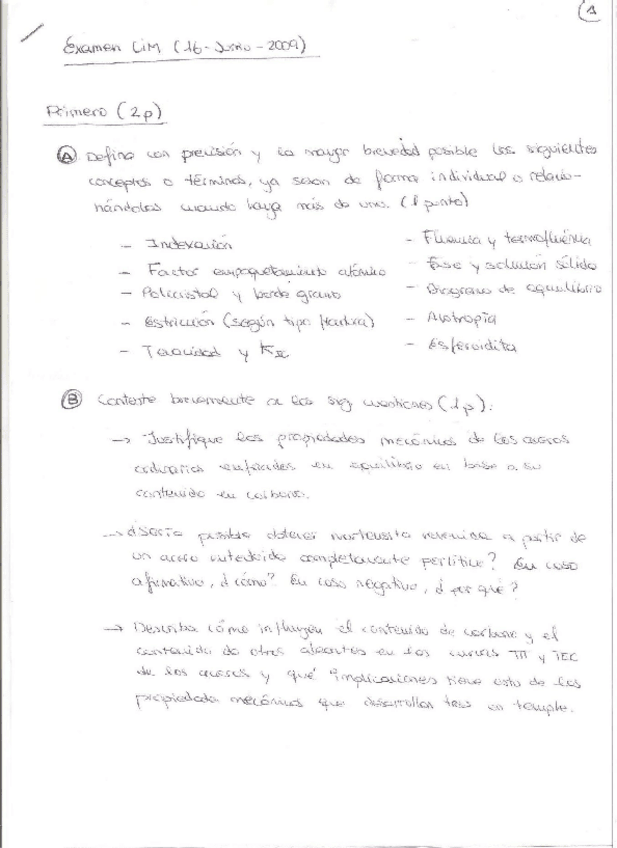 1
Examen CiM (16-Junio-2009)
Primero (2p)
A Defina con precisión y la mayor brevedad posible los siguientes
conceptos o términos, ya sean de forma individual o relacio-
nándolos cuando haya más de uno. (1 punto)
- Indexación
- Factor empaquetamiento atómico
- Policristal y borde grano
- Estricción (según tipo fractura)
- Tenacidad y KIC
- Fluencia y termofluencia
- Fase y solución sólida
- Diagrama de equilibrio
- Alotropía
- Esferoidita
B Conteste brevemente a las sig cuestiones (1p).
→ Justifique las propiedades mecánicas de los aceros
ordinarios enfriados en equilibrio en base a su
contenido en carbono.
→ ¿Sería posible obtener martensita revenida a partir de
un acero eutectoide completamente perlítico? En caso
afirmativo, ¿cómo? En caso negativo, ¿por qué?
→ Describa cómo influyen el contenido de carbono y el
contenido de otros aleantes en las curvas TTT y TEC
de los aceros y qué implicaciones tiene esto de las
propiedades mecánicas que desarrollan tras un temple.